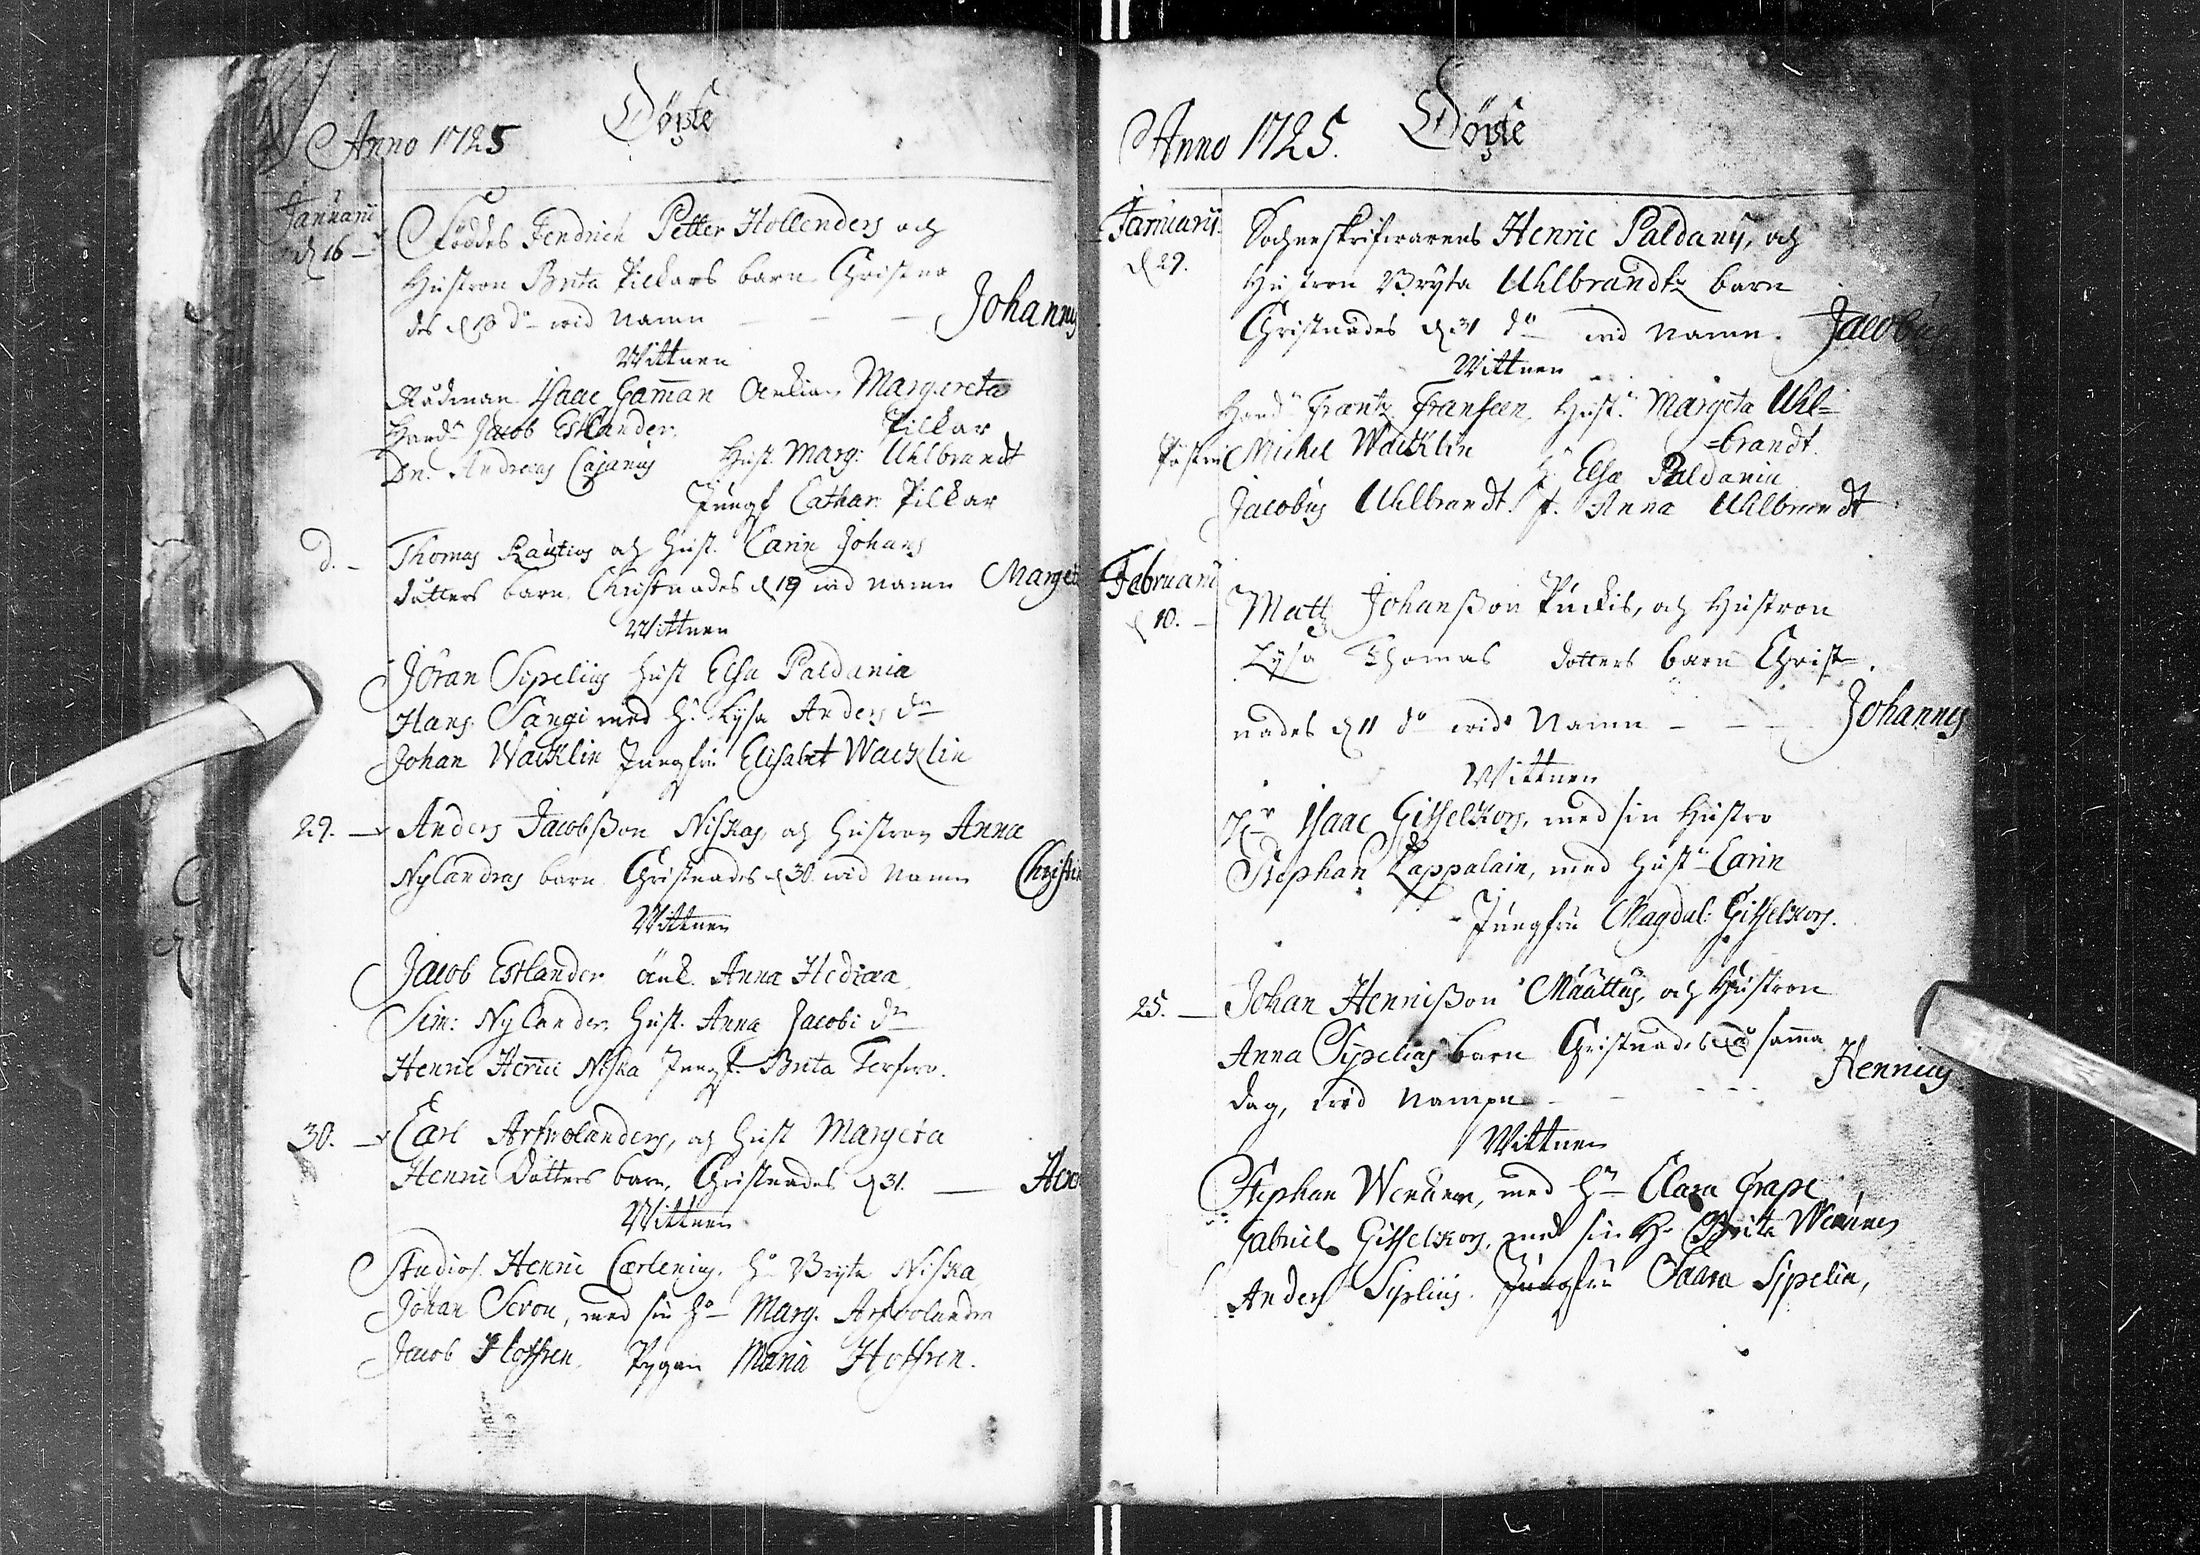 Anno 1725 Döpte
Januarii
d 16 —
Föddes Fendrich Petter Hollenders och
Hustron Brita Pilkars barn Christna
des d 18 do wid Namn — — — Johannes
Wittnen
Rådman Isaac Gaman Enkian Margareta
Pilkar
Hand. Jacob Estlander
Dn. Andreas Cajanus Hust. Marg: Uhlbrandt
Jungf Cathar: Pilkar
d. – Thomas Rautios och Hust. Carin Johans
dotters barn, Christnades d 19 wid namn Marget
Wittnen
Jöran Sipelius Hust Elsa Paldania
Hans Sangi med h. Lysa Anders dr
Johan Wacklin Jungfru Elisabet Wacklin
29. — Anders Jacobsson Niskas, och Hustron Anna
Nylandras barn Christnades d 30 wid Namn Christin
Wittnen
Jacob Estlander änk. Anna Hedraa
Sim: Nylander, Hust. Anna Jacobi dr
Henric Henrici Niska Jungf. Brita Terfwo.
30. — Carl Arfwolanders, och Hust Margeta
Henric Dotters barn, Christnades d 31. — Hen
Wittnen
Studios. Henric Carlenius, h. Bryta Niska
Johan Seron, med sin ho Marg. Arfwolandra
Jacob Hoffren, Pygan Maria Hoffren.
Anno 1725. Döpte
Januarii
d 29.
Sochneskrifwarens Henric Paldanii, och
Hustron Bryta Uhlbrandtz barn
Christnades d 31 do wid Namn. Jacobu
Wittnen
Hand. Frantz Franseen Hust. Margeta Uhl=
=brandt.
Michel Wacklin h. Elsa Paldania
Jacobus Uhlbrandt. J. Anna Uhlbrandt
Februarii
d 10. –
Matz Johansson Puckis, och Hustron
Lysa Thomas dotters barn Christ=
nades d 11 do wid Namn – – – Johannes
Wittnen
Hr Isaac Gisselkors, med sin Hustro
Stephan Lappalain, med Hust. Carin
Jungfru Magdal: Gisselkors.
25. — Johan Henrisson Määttus, och Hustron
Anna Sipelias barn Christnades samma
dag, wid Namn – – – – Henricus
Wittnen
Stephan Werkem, med h. Clara Grape
Gabriel Gisselkors, med sin H. Brita
Anders Siplius. Jungfru Claara Sipelia,